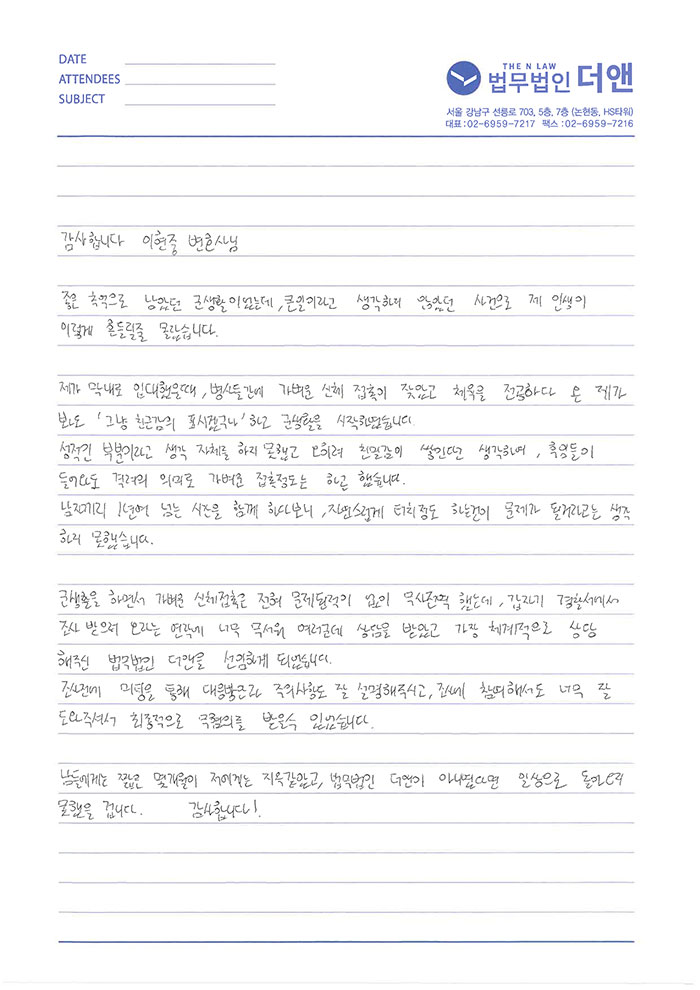 DATE
ATTENDEES
SUBJECT
THE N LAW
법무법인 더앤
서울 강남구 선릉로 703, 5층, 7층 (논현동, HS타워)
대표:02-6959-7217 팩스:02-6959-7216
감사합니다 이현중 변호사님
좋은 추억으로 남았던 군생활이었는데, 큰일이라고 생각하지 않았던 사건으로 제 인생이
이렇게 흔들릴줄 몰랐습니다.
제가 막내로 입대했을때, 병사들간에 가벼운 신체 접촉이 잦았고 체육을 전공하다 온 제가
봐도 '그냥 친근감의 표시겠구나' 하고 군생활을 시작하였습니다.
성적인 부분이라고 생각 자체를 하지 못했고 오히려 친밀감이 쌓인다고 생각하며, 후임들이
들어와도 격려의 의미로 가벼운 접촉정도는 하곤 했습니다.
남자끼리 1년여 넘는 시간을 함께 하다보니, 자연스럽게 터치정도 하는건이 문제가 될거라고는 생각
하지 못했습니다.
군생활을 하면서 가벼운 신체접촉은 전혀 문제된적이 없이 무사전역 했는데, 갑자기 경찰서에서
조사 받으러 오라는 연락에 너무 무서워 여러군데 상담을 받았고 가장 체계적으로 상담
해주신 법무법인 더앤을 선임하게 되었습니다.
조사전에 미팅을 통해 대응방안과 주의사항도 잘 설명해주시고, 조사에 참여해서도 너무 잘
도와주셔서 최종적으로 무혐의를 받을수 있었습니다.
남들에게는 짧은 몇개월이 저에게는 지옥같았고, 법무법인 더앤이 아니었다면 일상으로 돌아오지
못했을 겁니다. 감사합니다!